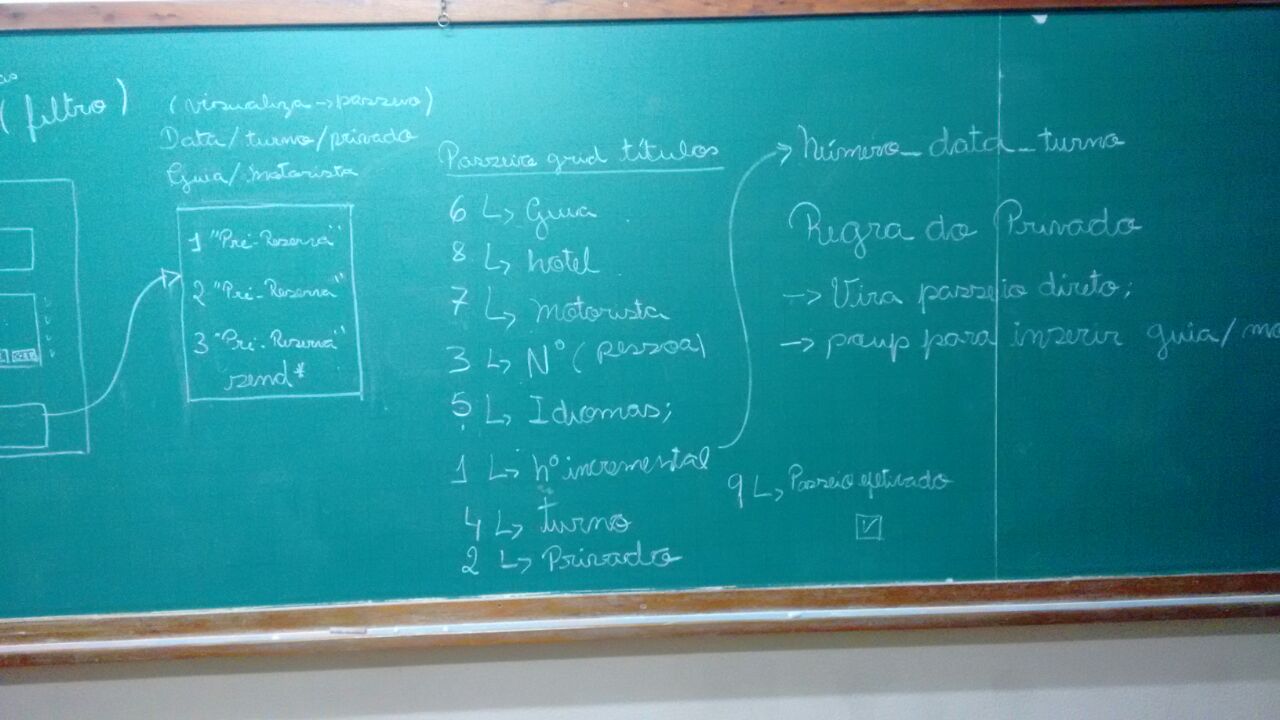 (filtro)
(visualiza → passeio)
Data/turno/privado
Guia/motorista
1 "Pré-Reserva"
2 "Pré-Reserva"
3 "Pré-Reserva"
Passeio grid títulos
6 ↳ Guia
8 ↳ hotel
7 ↳ motorista
3 ↳ Nº (pessoa)
5 ↳ Idiomas;
1 ↳ nº incremental
4 ↳ turno
2 ↳ Privado
→ Número_data_turno
Regra do Privado
→ Vira passeio direto;
→ para inserir guia/mo
9 ↳ Passeio efetivado